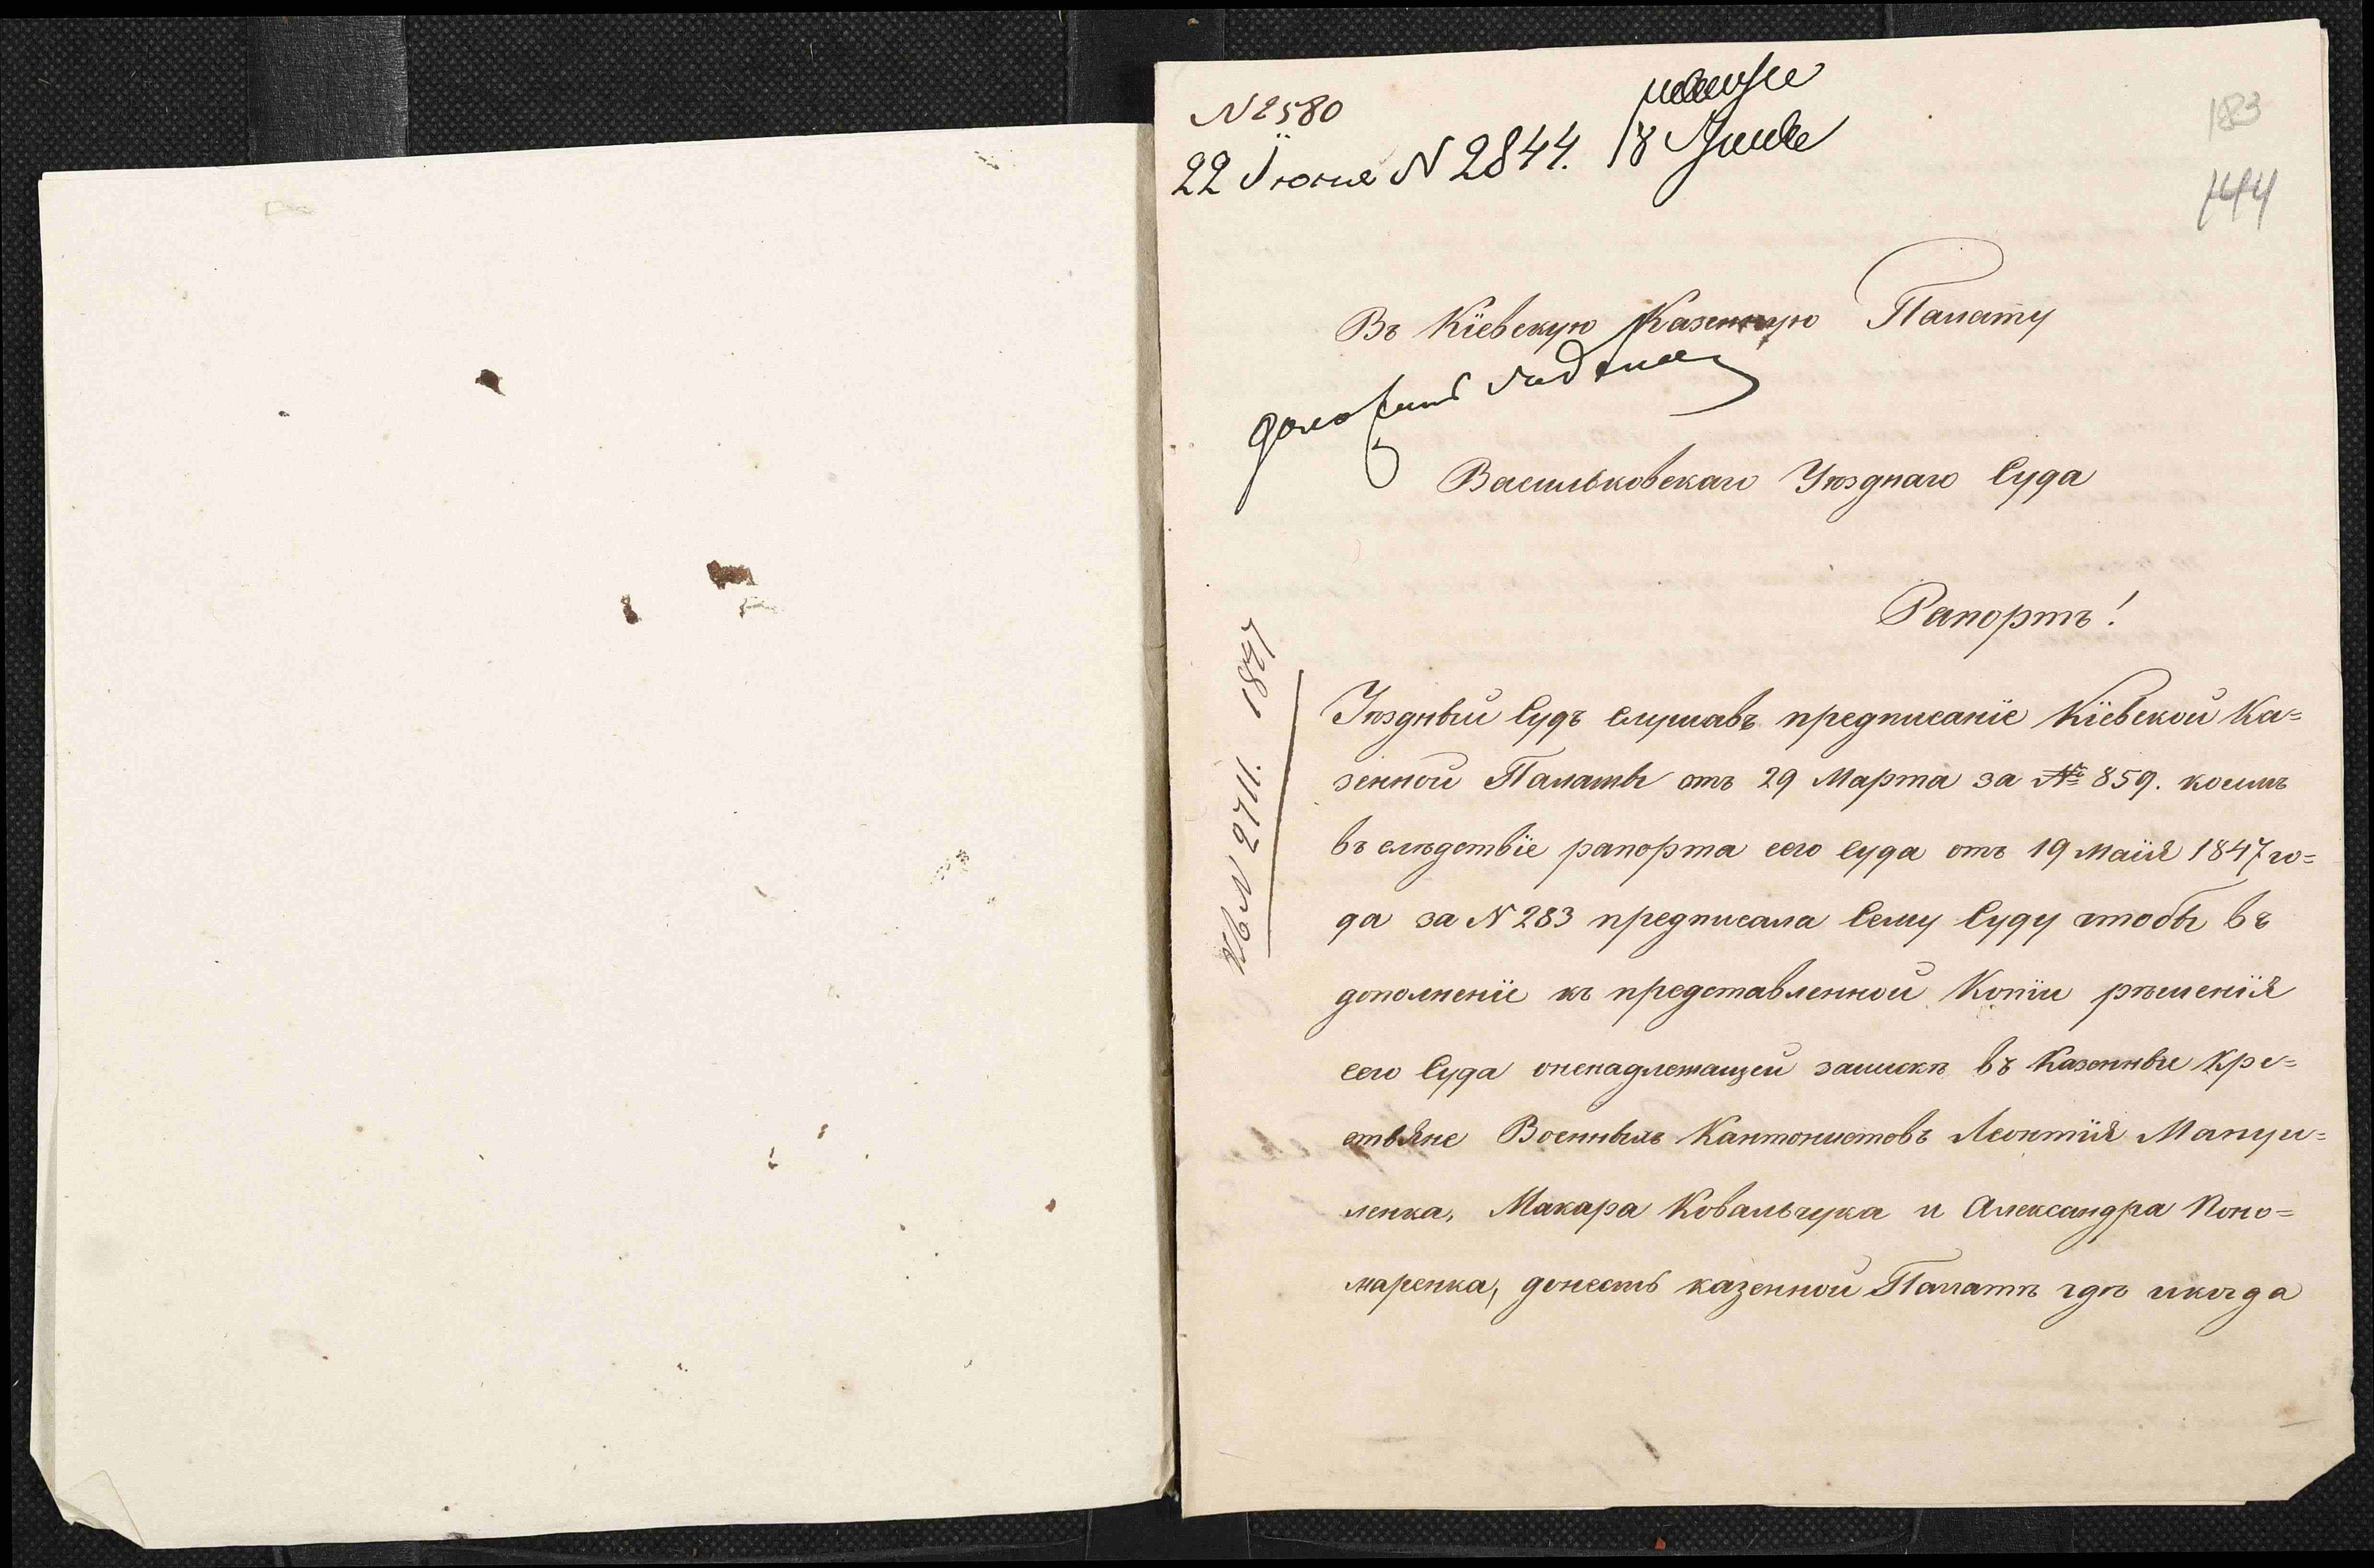 N 2580
22 Іюня N 2844. 18 Іюня
183
144
Въ Кіевскую Казенную Палату
Васильковскаго Уѣзднаго Суда
Рапортъ!
N 2711. 1847
Уѣздный Судъ слушавъ предписаніе Кіевской Ка=
зенной Палаты отъ 29 Марта за № 859. коимъ
въ слѣдствіе рапорта сего суда отъ 19 Маія 1847 го=
да за N 283 предписала Сему Суду чтобы въ
дополненіе къ представленной Копіи рѣшенія
сего Суда оненадлежащей запискѣ въ Казенные Кре=
стьяне Военныхъ Кантонистовъ Леонтія Мануи=
ленка, Макара Ковальчука и Александра Поно=
маренка, донесть казенной Палатѣ гдѣ икогда